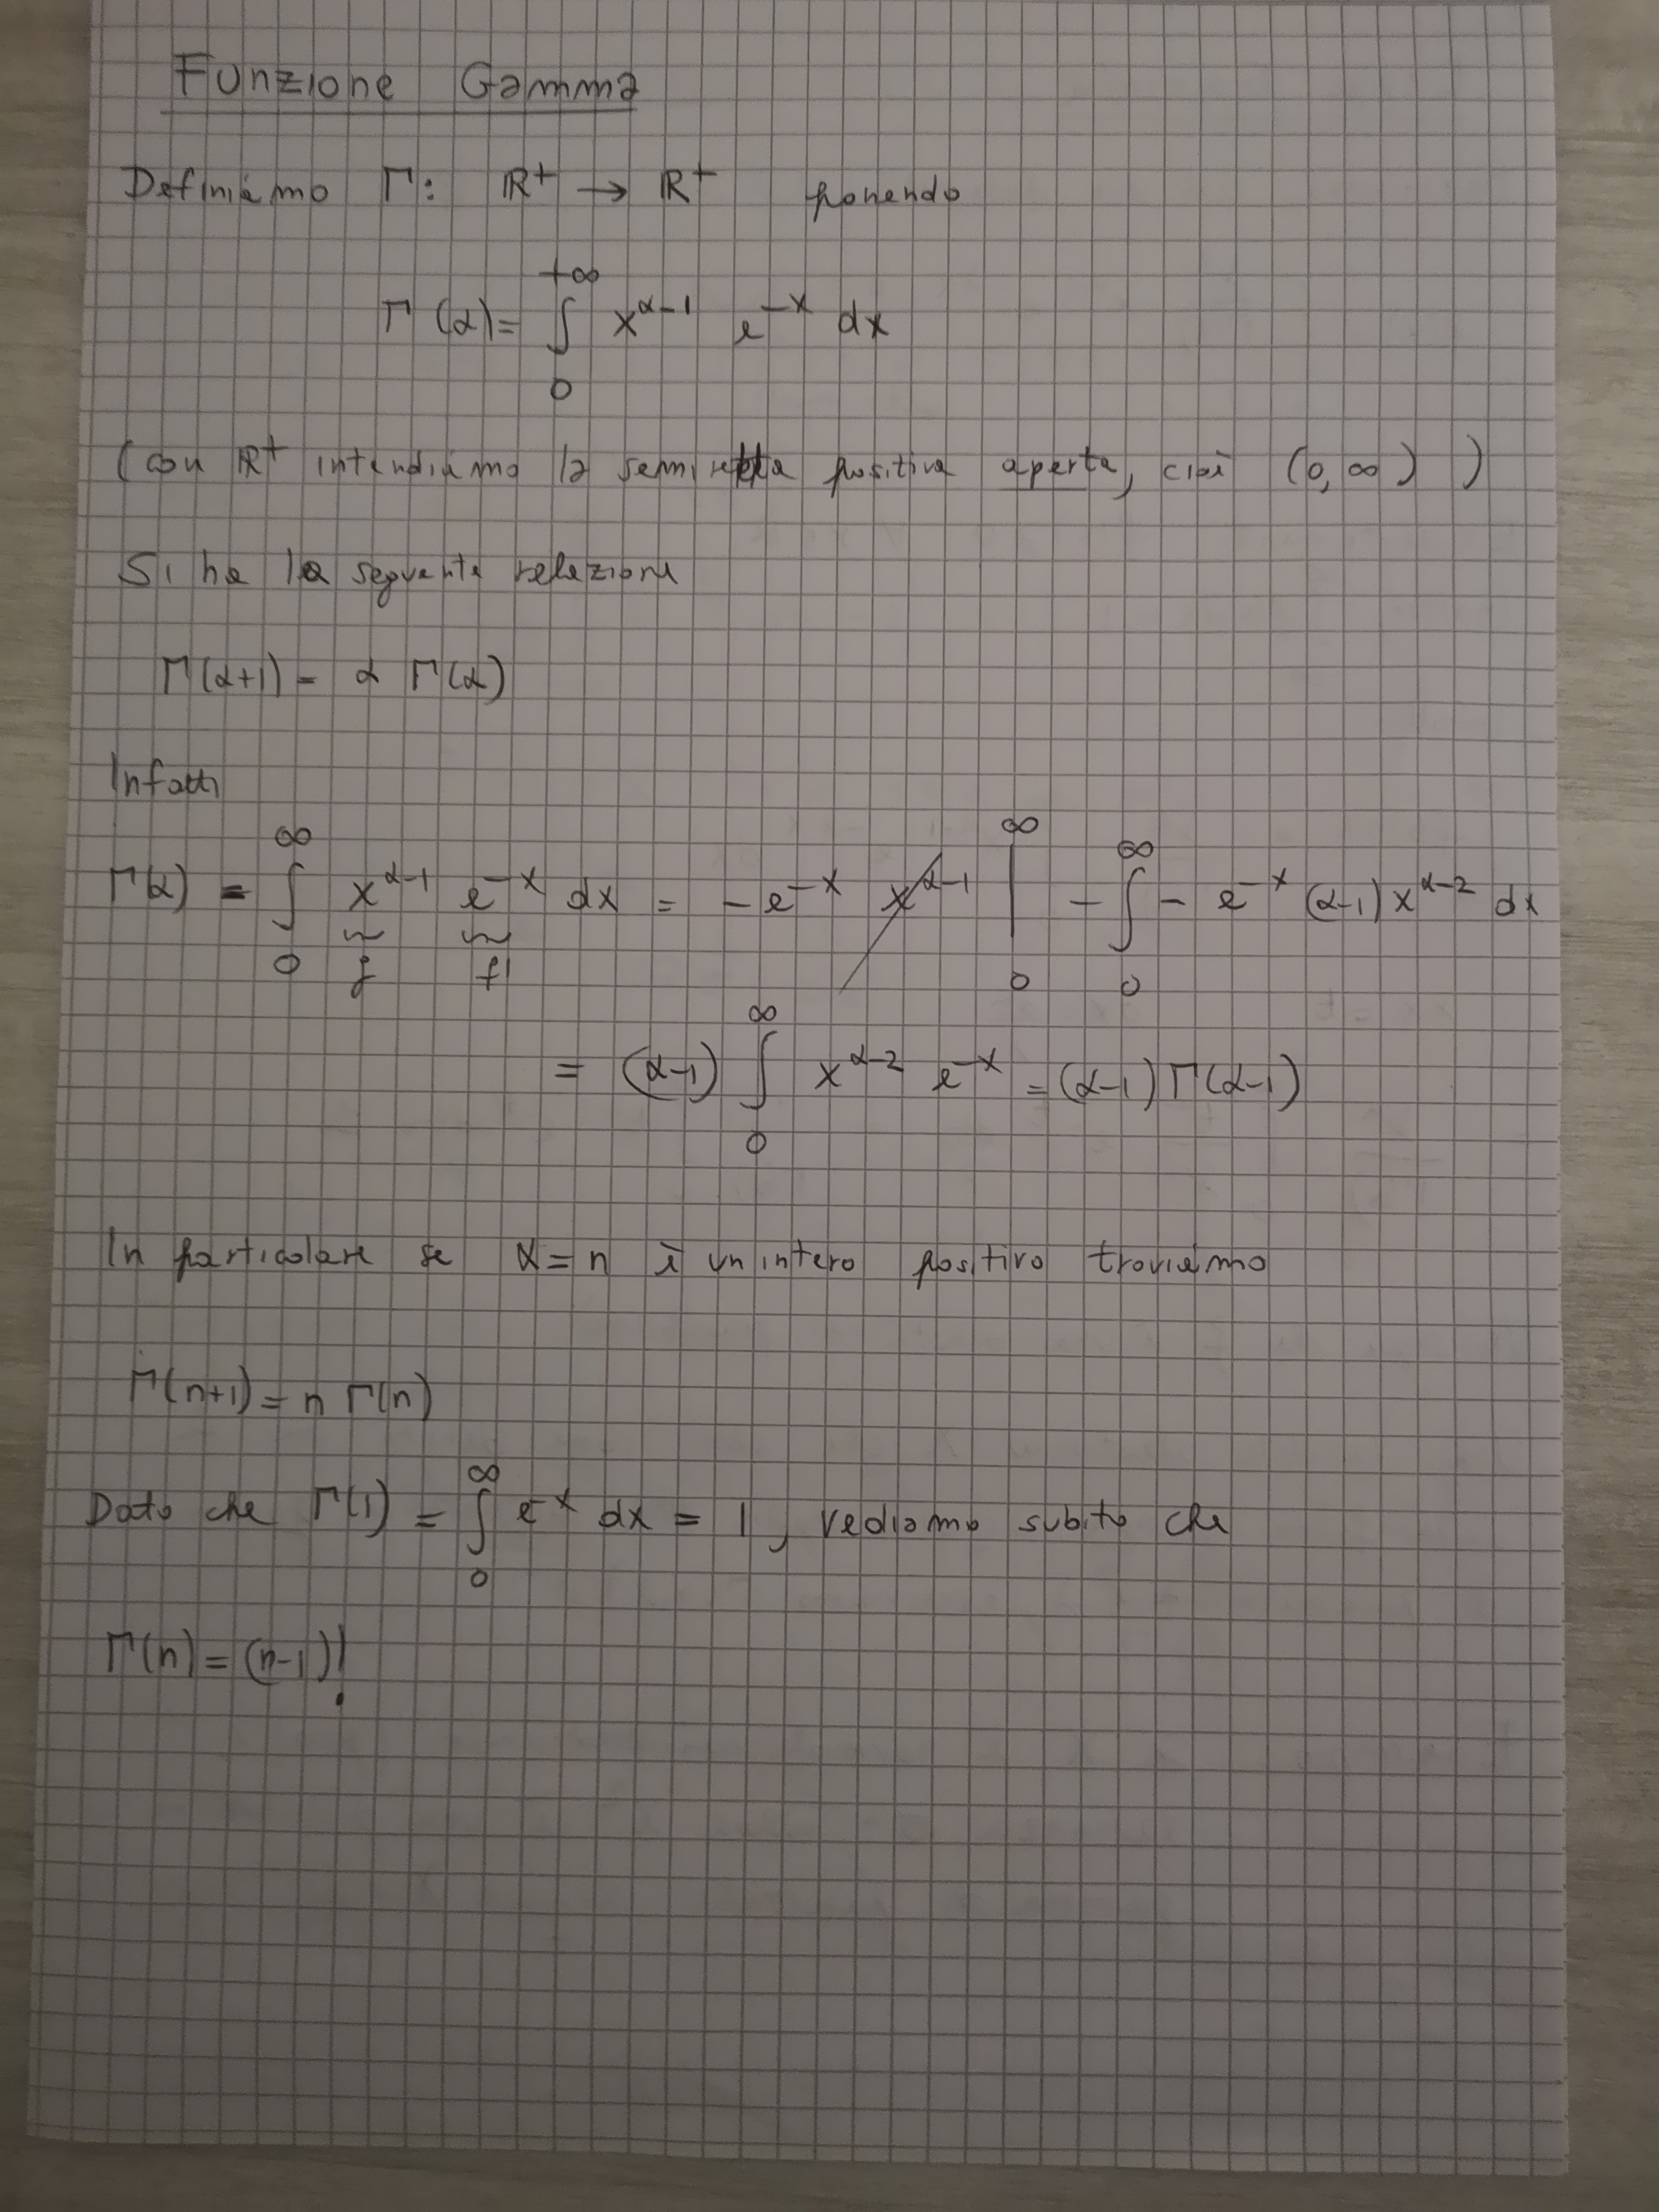 Funzione Gamma
Definiamo Γ: ℝ⁺ → ℝ⁺ ponendo
Γ(α) = ∫₀^{+∞} x^{α-1} e^{-x} dx
(con ℝ⁺ intendiamo la semiretta positiva aperta, cioè (0, ∞) )
Si ha la seguente relazione
Γ(α+1) = α Γ(α)
Infatti
Γ(α) = ∫₀^∞ x^{α-1} e^{-x} dx = -e^{-x} x^{α-1} |₀^∞ - ∫₀^∞ - e^{-x} (α-1) x^{α-2} dx
g f'
= (α-1) ∫₀^∞ x^{α-2} e^{-x} = (α-1) Γ(α-1)
In particolare se α = n è un intero positivo troviamo
Γ(n+1) = n Γ(n)
Dato che Γ(1) = ∫₀^∞ e^{-x} dx = 1, vediamo subito che
Γ(n) = (n-1)!